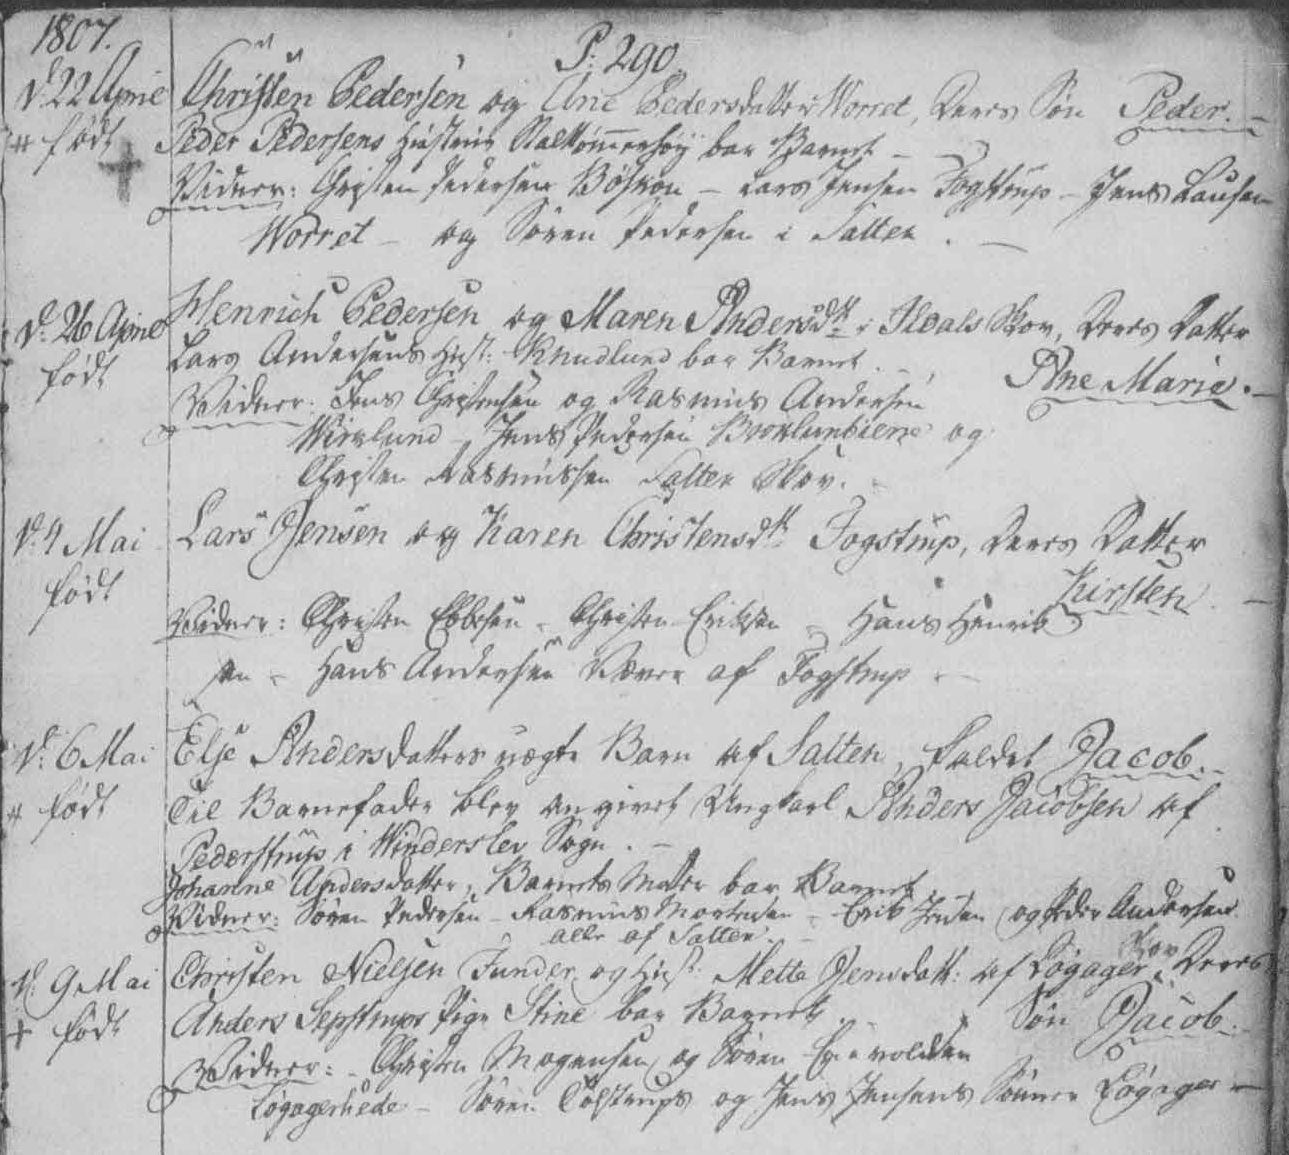 1807.
P: 290
d. 22 April Christen Pedersen og Ane Pedersdatter i Worret, Deres Søn Peder.
født Peder Pedersens Hustrue bar Barnet
Vidner: Christen Pedersen Bøskou - Lars Jensen Fogstrup - Jens Lausen
Worret - og Søren Pedersen i Salten.
d. 26 April Henrich Pedersen og Maren Andersdtr i Skov, Deres Datter
født Lars Andersens Hust: Knudlund bar Barnet.
Ane Marie.
Vidner: Jens Christensen og Rasmus Andersen
Wirklund - Jens Pedersen og
Christen Rasmussen Salten Skov.
d. 4 Mai Lars Jensen og Karen Christensdtr Fogstrup, Deres Datter
født Kirsten
Vidner: Christen Ebbesen - Christen Eriksen - Hans Henrik
sen - Hans Andersen Væver af Fogstrup
d. 6 Mai Else Andersdatters uægte Barn af Salten, kaldet Jacob.
født Til Barnefader blev angivet Ungkarl Anders Jacobsen af
Pederstrup i Winderslev Sogn.
Johanne Andersdatter, Barnets Moster bar Barnet
Vidner: Søren Pedersen - Rasmus Mortensen - Erik Jensen og Peder Andersen
alle af Salten.
d. 9 Mai Christen Nielsen Funder og Hust. Mette Jensdatt: af Løgager Skov Deres
født Anders Sepstrups Pige Stine bar Barnet. Søn Jacob.
Vidner: - Christen Mogensen og Søren
Løgagerhede - Søren Tolstrups og Jens Jensens Sønner Løgager